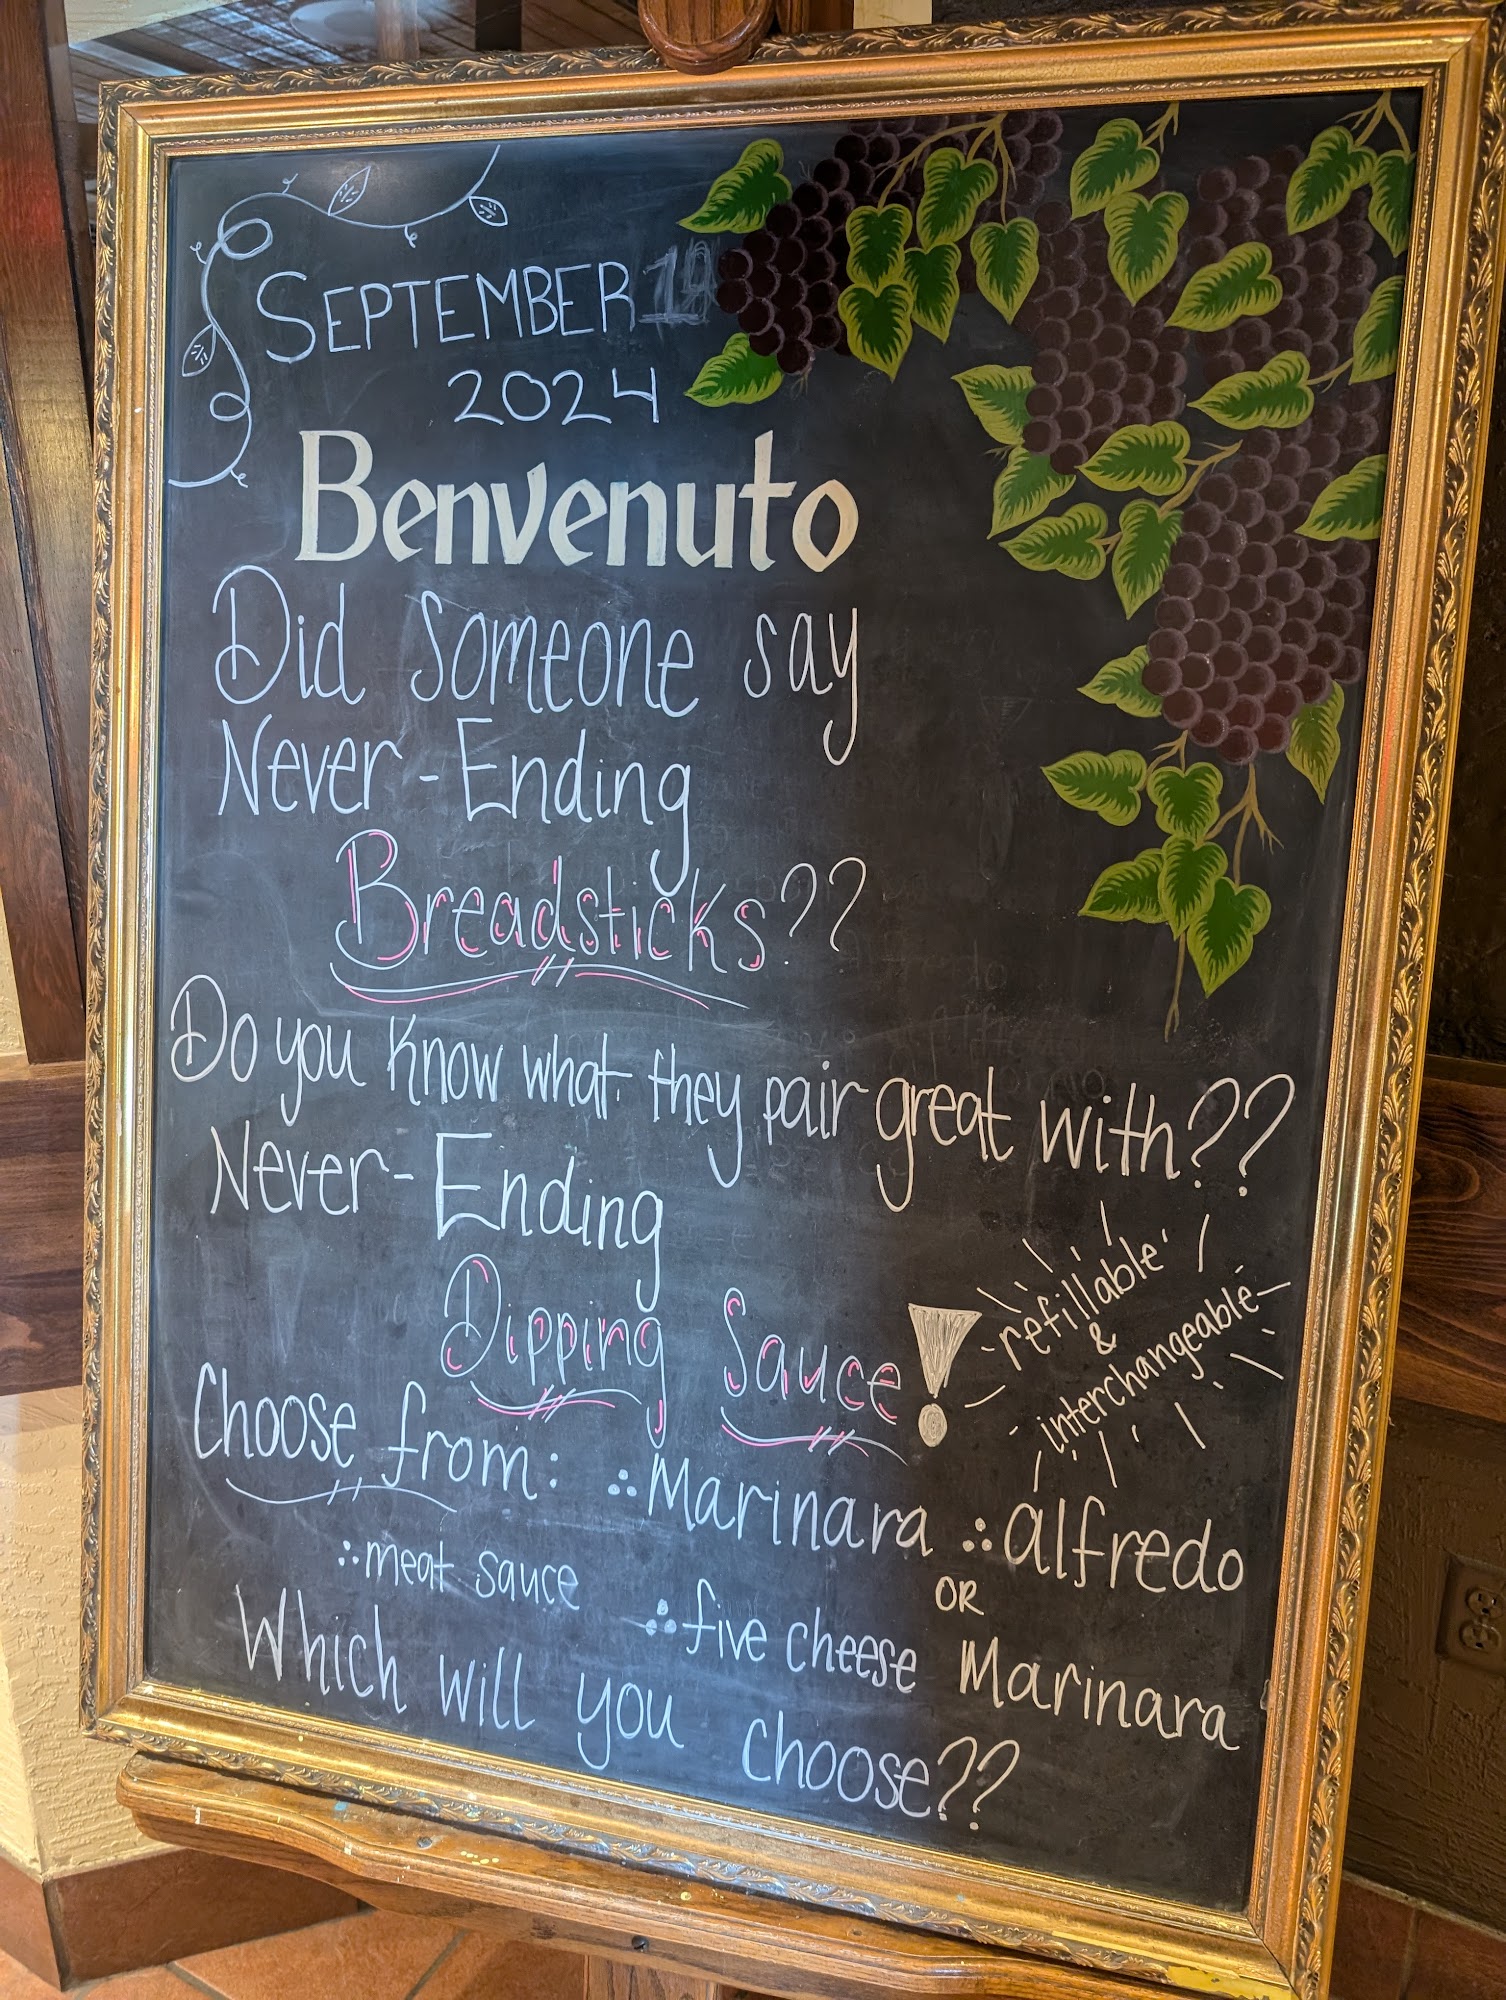 SEPTEMBER
2024
Benvenuto
Did Someone say
Never-Ending
Breadsticks??
Do you know what they pair great with??
Never-Ending
Dipping Sauce!
refillable
&
interchangeable
Choose from: Marinara alfredo
meat sauce
five cheese OR Marinara
Which will you choose??